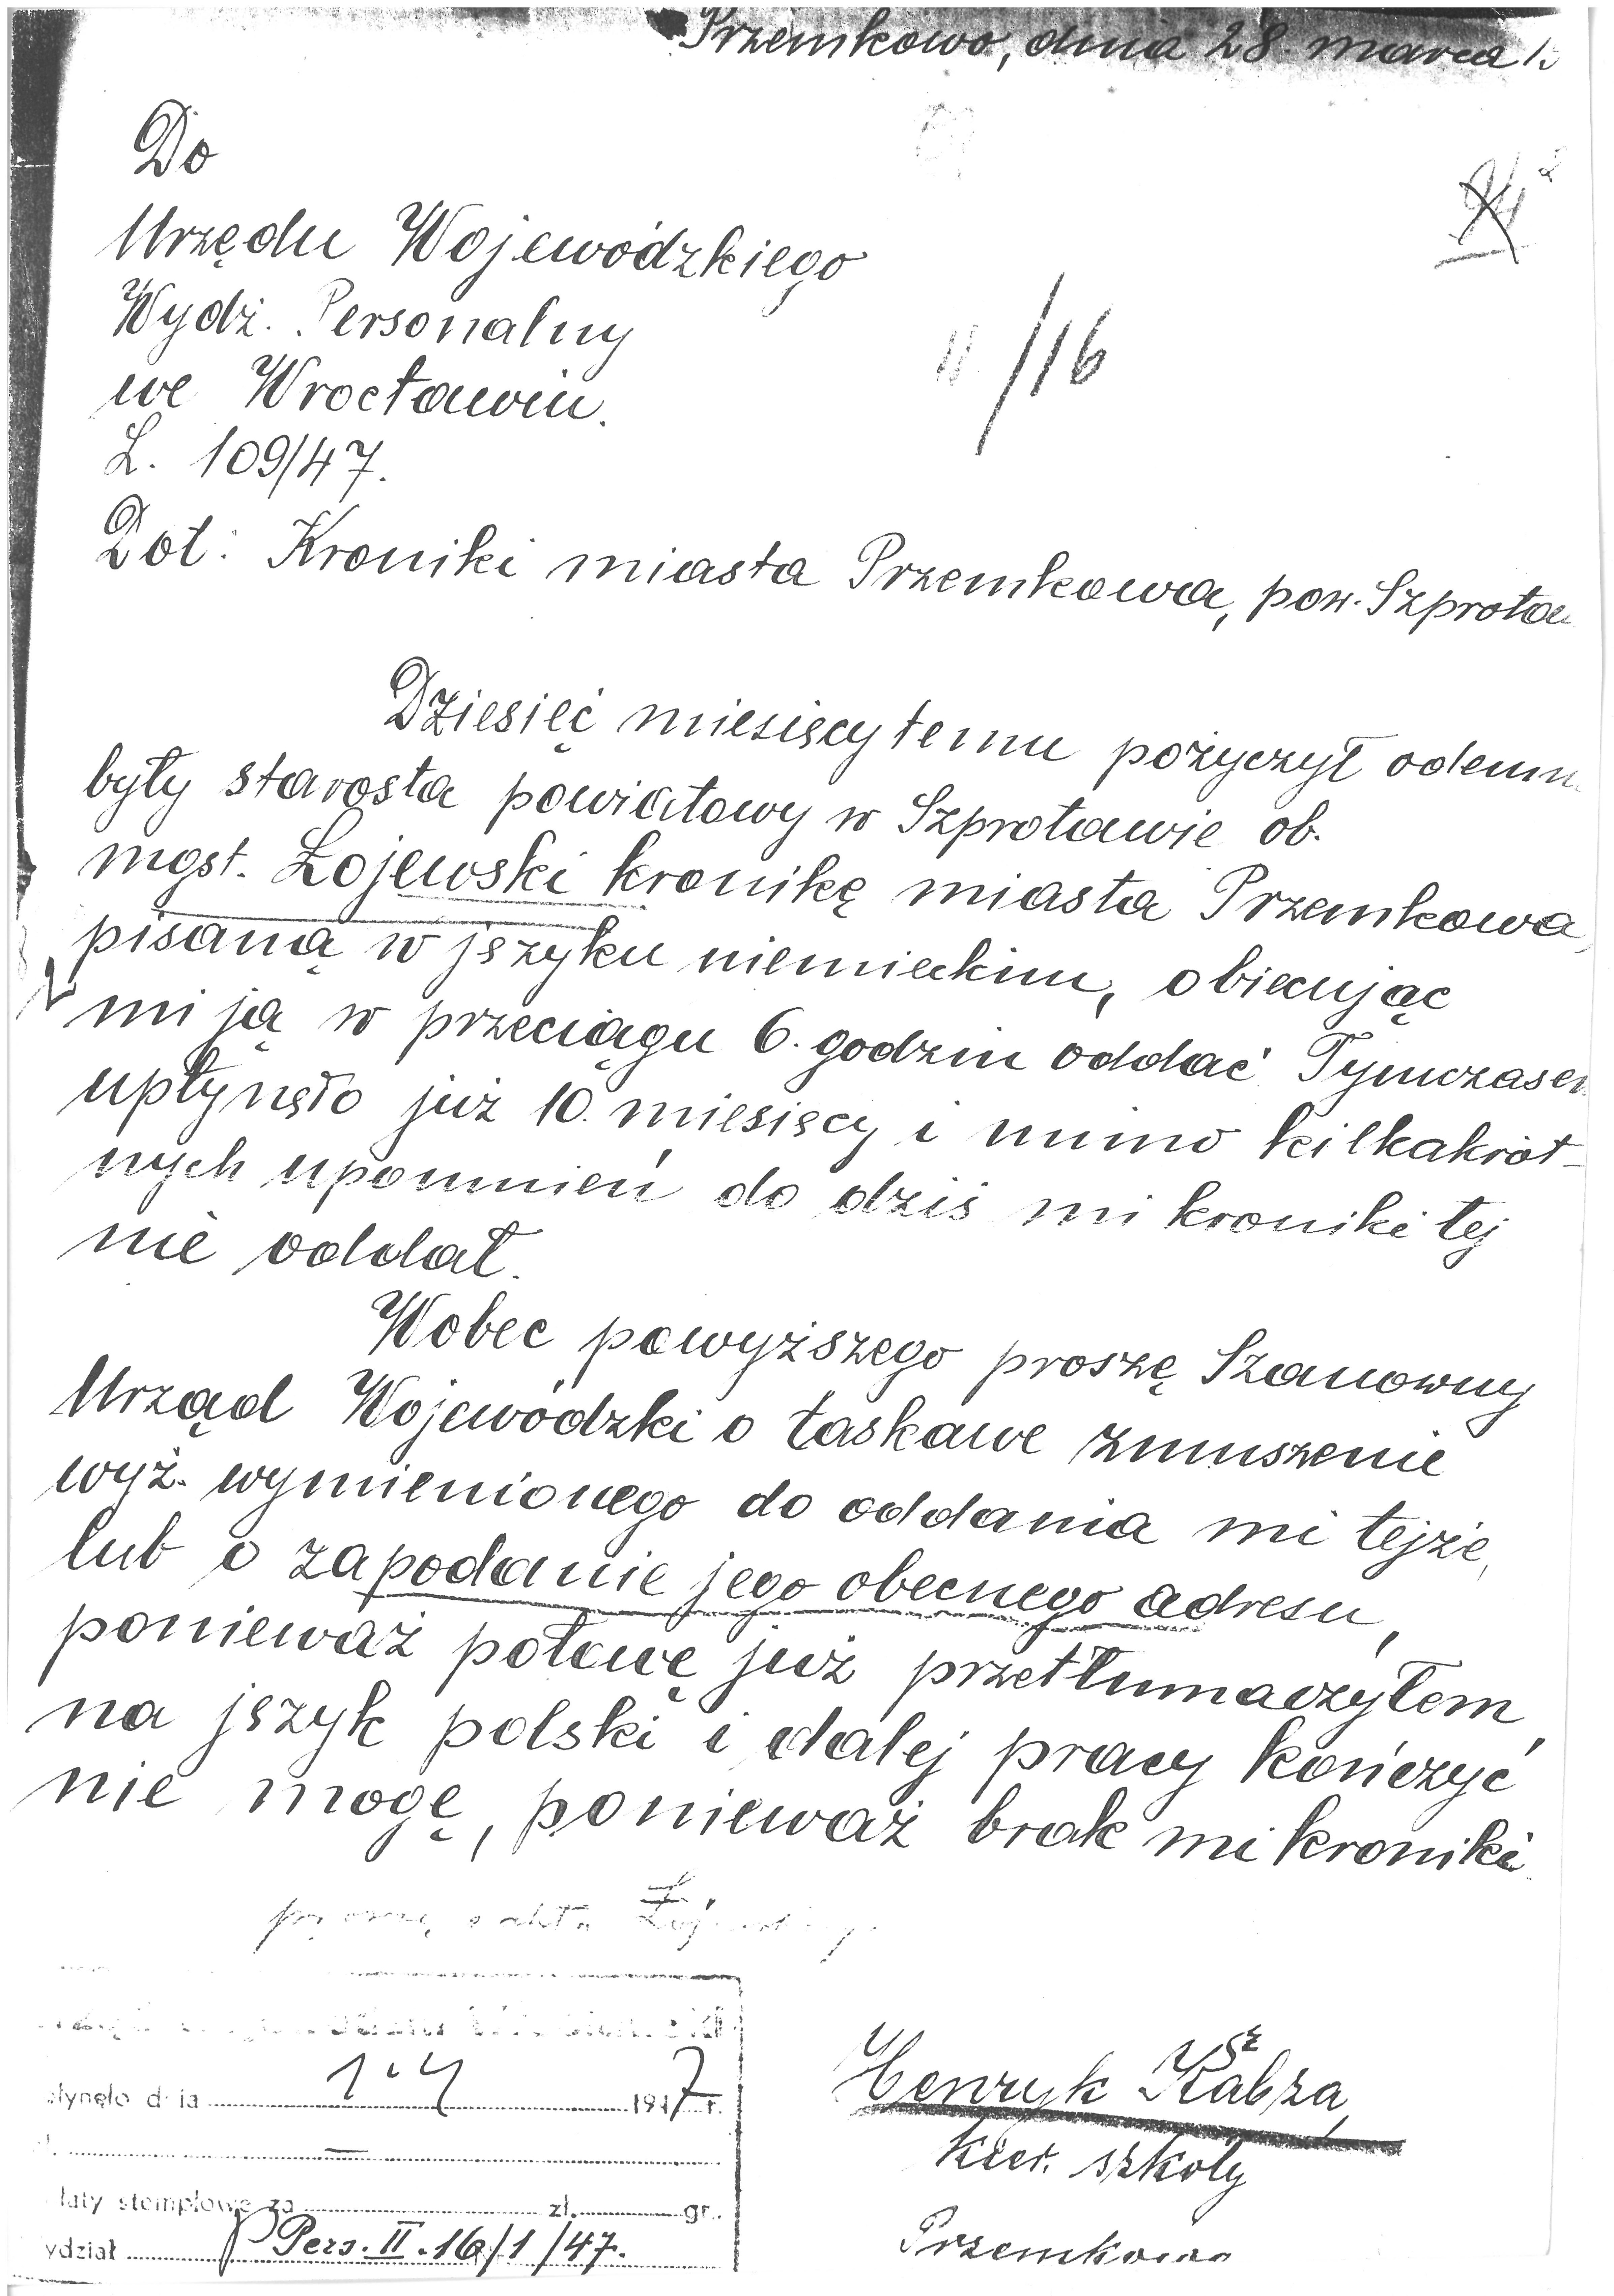 Przemkowo, dnia 28. marca 1
Do
Urzędu Wojewódzkiego
Wydz. Personalny
we Wrocławiu.
L. 109/47.
Dot: Kroniki miasta Przemkowa, pow. Szprotaw
/16
Dziesięć miesięcy temu pożyczył odemn
były starosta powiatowy w Szprotawie ob.
mgst. Łojewski kronikę miasta Przemkowa,
pisaną w języku niemieckim, obiecując
mi ją w przeciągu 6. godzin oddać. Tymczasem
upłynęło już 10. miesięcy i mimo kilkakrot-
nych upomnień do dziś mi kroniki tej
nie oddał.
Wobec powyższego proszę Szanowny
Urząd Wojewódzki o łaskawe zmuszenie
wyż. wymienionego do oddania mi tejże,
lub o zapodanie jego obecnego adresu,
ponieważ połowę już przetłumaczyłem
na język polski i dalej pracy kończyć
nie mogę, ponieważ brak mi kroniki.
płynęło dnia 1.4 1947 r.
łaty stemplowe za zł. gr.
ydział Pers. II. 16/1/47.
Henryk Kabza
kier. szkoły
Przemkowo